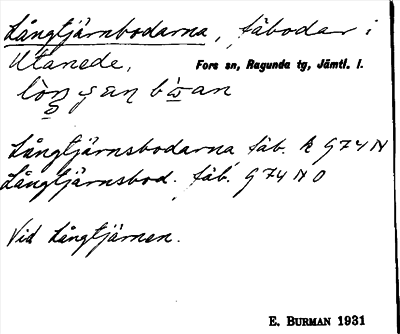 Långtjärnbodarna, fäbodar i
Utanede, Fors sn, Ragunda tg, Jämtl. l.
Långtjärnsbodarna fäb. k G74N
Långtjärnsbod. fäb. G74NO
Vid Långtjärnen.
E. BURMAN 1931